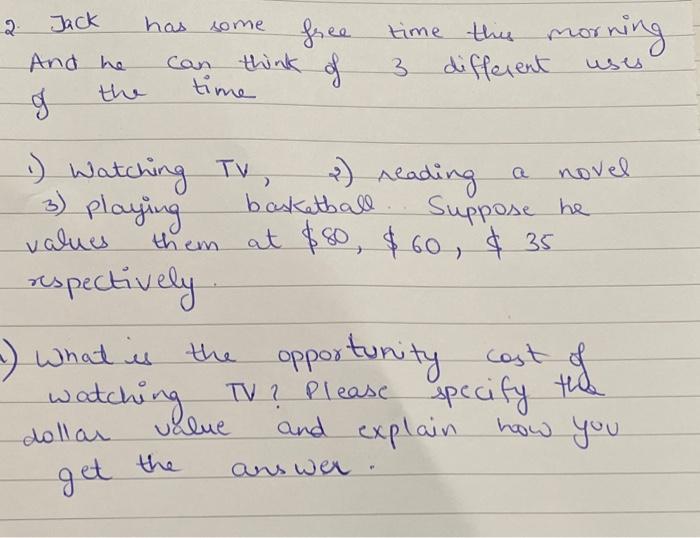 2. Jack has some free time this morning
And he can think of 3 different uses
of the time
1) Watching TV, 2) reading a novel
3) playing basketball. Suppose he
values them at $80, $60, $35
respectively.
1) What is the opportunity cost of
watching TV? Please specify the
dollar value and explain how you
get the answer.